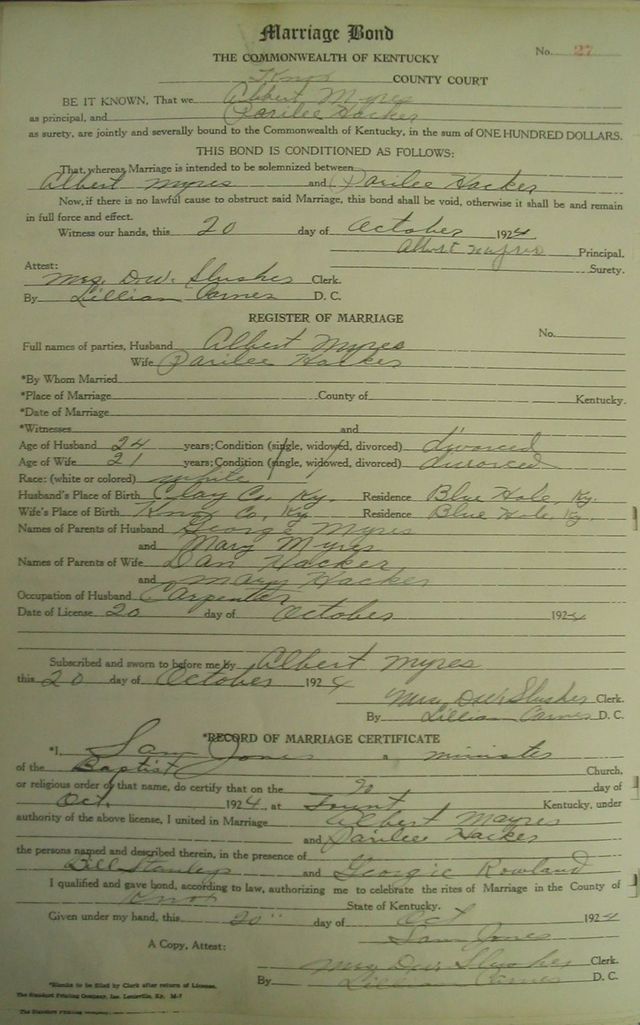 Marriage Bond
No. 27
THE COMMONWEALTH OF KENTUCKY
Knox COUNTY COURT
BE IT KNOWN, That we Albert Myres
as principal, and Parilee Hacker
as surety, are jointly and severally bound to the Commonwealth of Kentucky, in the sum of ONE HUNDRED DOLLARS.
THIS BOND IS CONDITIONED AS FOLLOWS:
That, whereas Marriage is intended to be solemnized between
Albert Myres and Parilee Hacker
Now, if there is no lawful cause to obstruct said Marriage, this bond shall be void, otherwise it shall be and remain
in full force and effect.
Witness our hands, this 20 day of October 1924
Albert Principal.
Surety.
Attest:
Mrs. D.W. Slusher Clerk.
By Lillian Carnes D. C.
REGISTER OF MARRIAGE
No.
Full names of parties, Husband Albert Myres
Wife Parilee Hacker
*By Whom Married
*Place of Marriage County of Kentucky.
*Date of Marriage
*Witnesses and
Age of Husband 24 years; Condition (single, widowed, divorced) divorced
Age of Wife 21 years; Condition (single, widowed, divorced) divorced
Race: (white or colored) white
Husband's Place of Birth Clay Co, Ky. Residence Blue Hole, Ky.
Wife's Place of Birth Knox Co, Ky. Residence Blue Hole, Ky.
Names of Parents of Husband George Myres
and Mary Myres
Names of Parents of Wife Dan Hacker
and Mary Hacker
Occupation of Husband Carpenter
Date of License 20 day of October 1924
Subscribed and sworn to before me by Albert Myres
this 20 day of October 1924
Mrs. D.W. Slusher Clerk.
By Lillian Carnes D. C.
*RECORD OF MARRIAGE CERTIFICATE
*I, Sam Jones a minister
of the Baptist Church,
or religious order of that name, do certify that on the 20 day of
Oct. 1924, at Kentucky, under
authority of the above license, I united in Marriage Albert Mayres
and Parilee Hacker
the persons named and described therein, in the presence of
Bill Stanley and Georgie Rowland
I qualified and gave bond, according to law, authorizing me to celebrate the rites of Marriage in the County of
Knox State of Kentucky.
Given under my hand, this 20" day of Oct 1924
Sam Jones
A Copy, Attest:
Mrs D.W. Slusher Clerk.
By Lillian Carnes D. C.
*Blanks to be filed by Clerk after return of License.
The Standard Printing Company, Inc. Louisville, Ky. M-7
The Standard Printing Company,